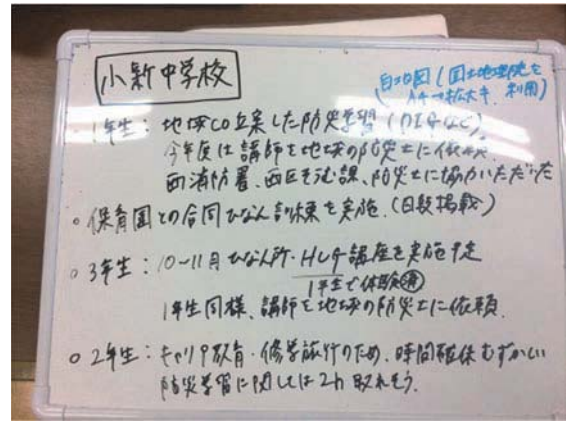 小新中学校
白地図(国土地理院を
A4→拡大キ 利用)
1年生:地域CO立案した防災学習(DIGなど)。
今年度は講師を地域の防災士に依頼。
西消防署、西区そむ課、防災士に協力いただいた
○保育園との合同ひなん訓練を実施。(日報掲載)
○3年生:10~11月 ひなん所・HUG講座を実施予定
1年生で体験済
1年生同様、講師を地域の防災士に依頼。
○2年生:キャリア教育・修学旅行のため、時間確保むずかしい
防災学習に関しては2h取れそう。